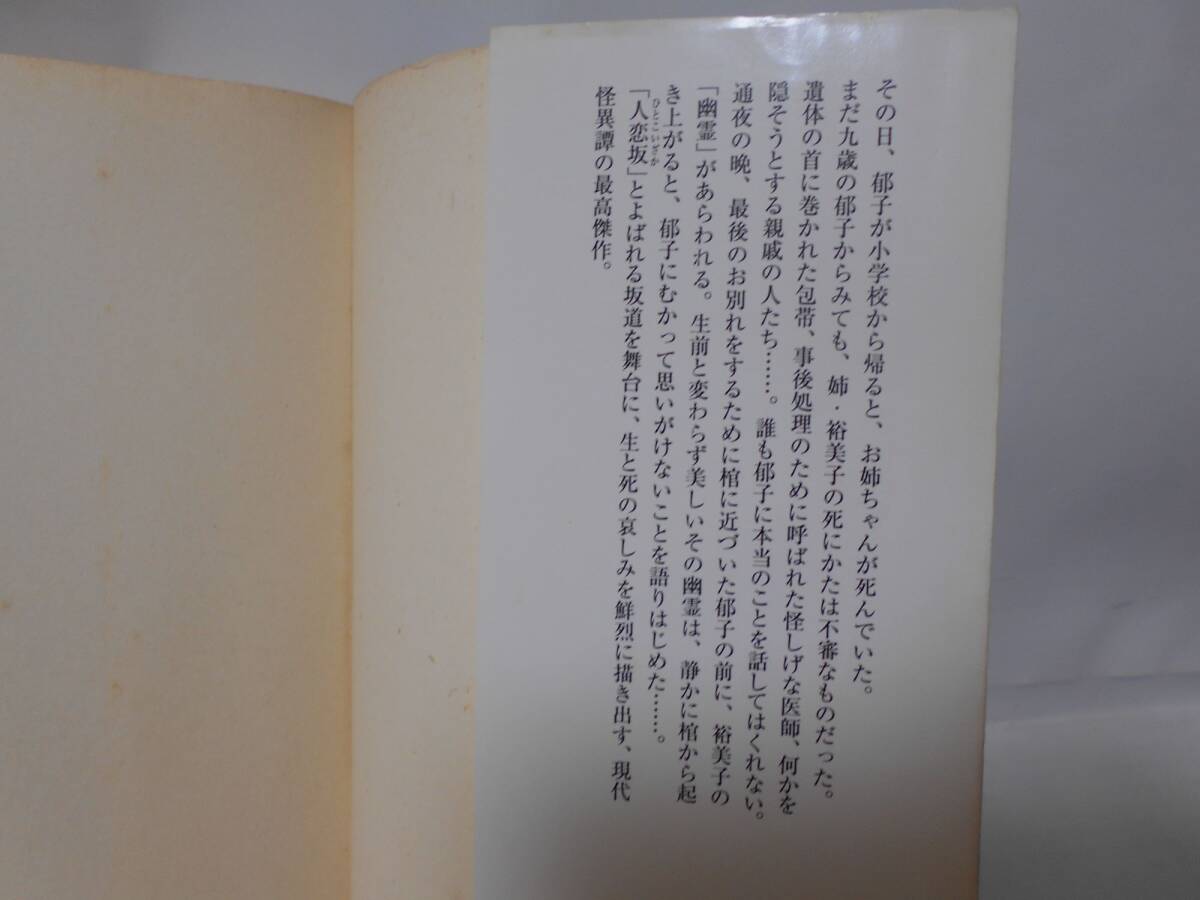 その日、郁子が小学校から帰ると、お姉ちゃんが死んでいた。
まだ九歳の郁子からみても、姉・裕美子の死にかたは不審なものだった。
遺体の首に巻かれた包帯、事後処理のために呼ばれた怪しげな医師、何かを
隠そうとする親戚の人たち……。誰も郁子に本当のことを話してはくれない。
通夜の晩、最後のお別れをするために棺に近づいた郁子の前に、裕美子の
「幽霊」があらわれる。生前と変わらず美しいその幽霊は、静かに棺から起
き上がると、郁子にむかって思いがけないことを語りはじめた……。
ひとこいざか
「人恋坂」とよばれる坂道を舞台に、生と死の哀しみを鮮烈に描き出す、現代
怪異譚の最高傑作。